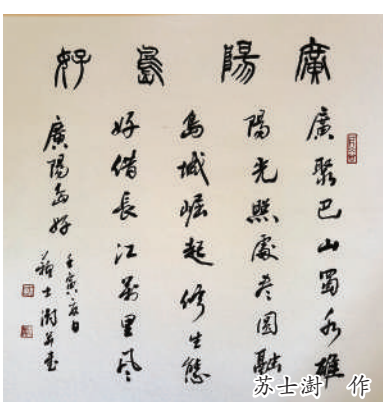 廣陽島好
廣聚巴山蜀水雄
陽光照處盡園融
島城崛起修生態
好借長江萬里風
廣陽島好
壬寅夏日
蘇士澍并書
苏士澍 作